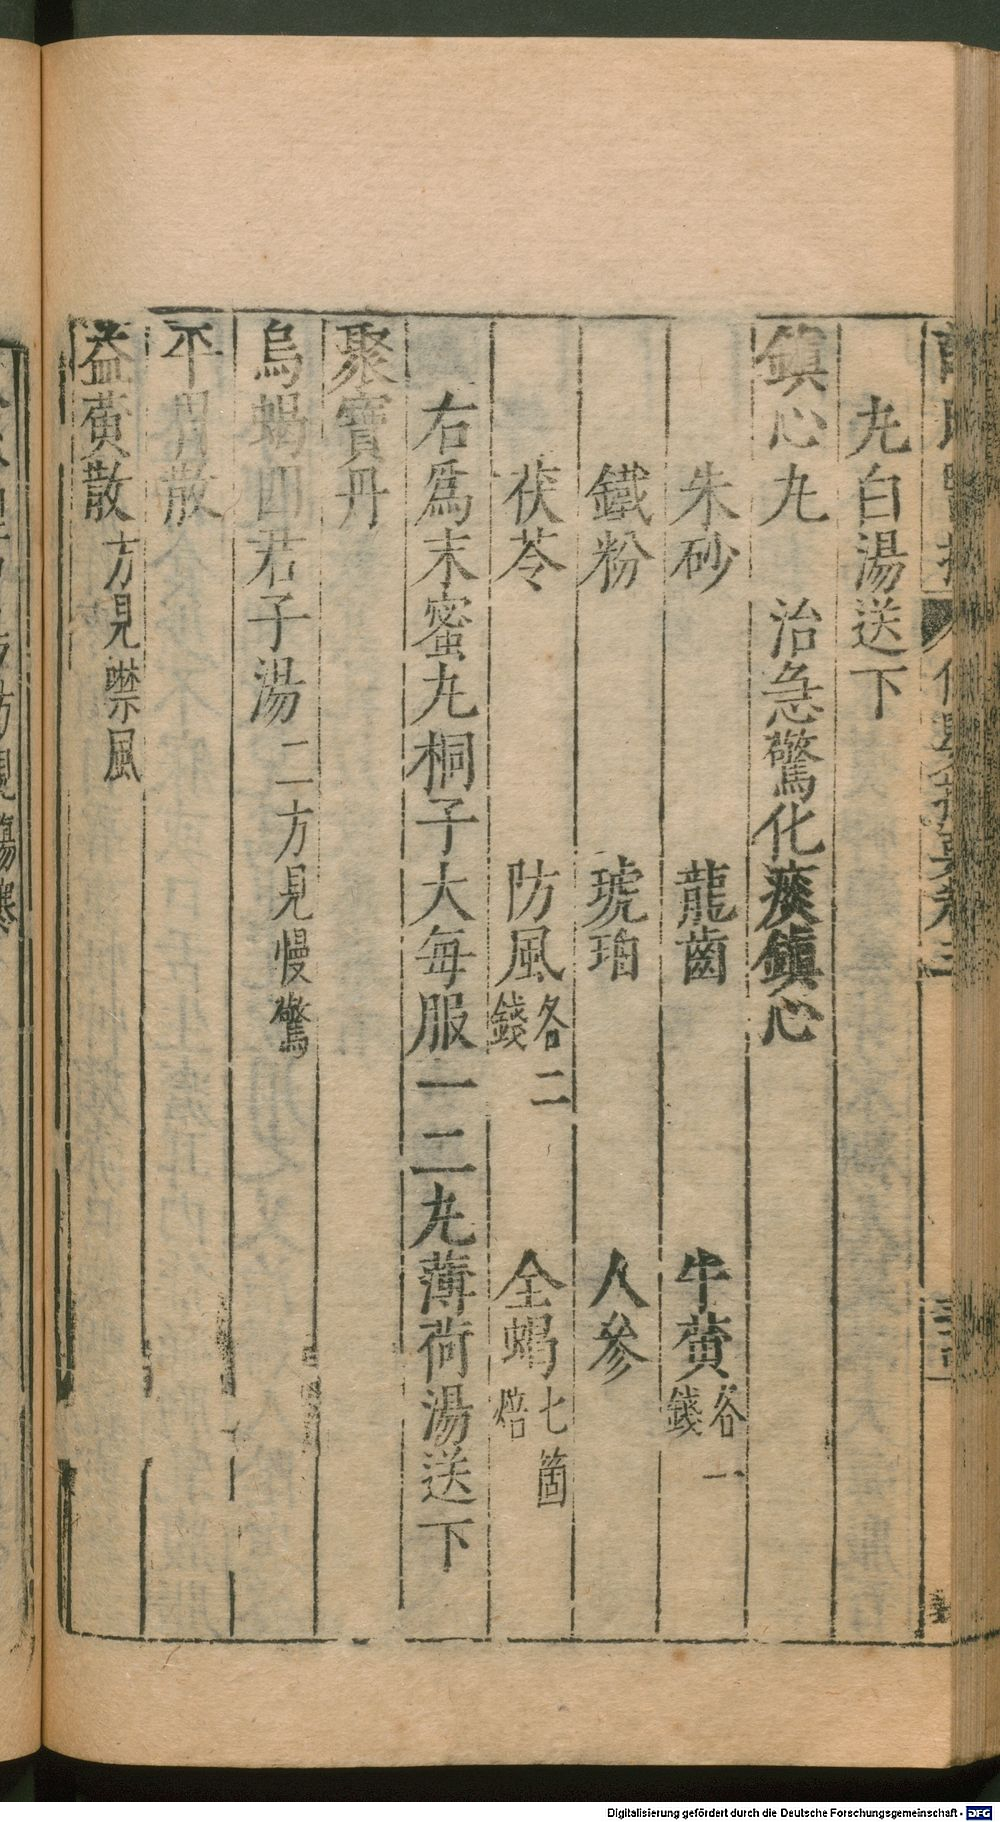 丸白湯送下
鎮心丸 治急驚化痰鎮心
朱砂 龍齒 牛黄各一錢
鐵粉 琥珀 人參
茯苓 防風各二錢 全蝎七箇焙
右爲末蜜丸桐子大每服一二丸薄荷湯送下
聚寶丹
烏蝎四君子湯二方見慢驚
平胃散
益黄散方見噤風
Digitalisierung gefördert durch die Deutsche Forschungsgemeinschaft - DFG